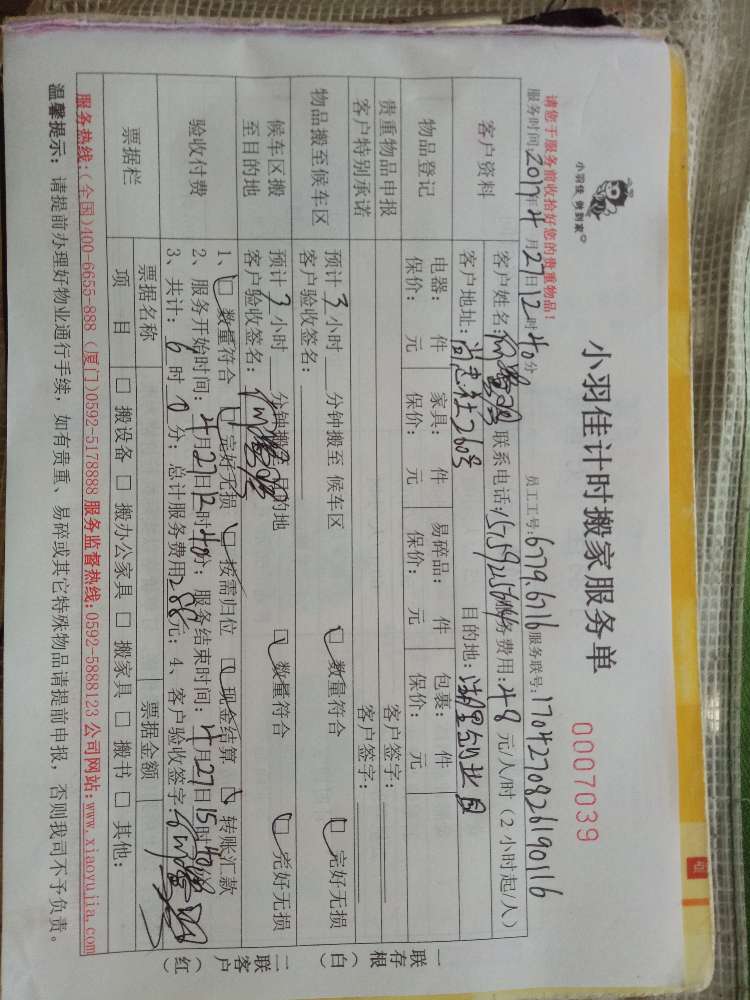 小羽佳 做到家
小羽佳计时搬家服务单
0007039
请您于服务前收拾好您的贵重物品！
员工工号:6779.6716 服务联号:1704270826190116
服务时间:2017年4月27日12时40分
客户资料
客户姓名: 联系电话: 服务费用:48元/人/时（2小时起/人）
客户地址:尚忠社260号 目的地:
物品登记
电器: 件 家具: 件 易碎品: 件 包裹: 件
保价: 元 保价: 元 保价: 元 保价: 元
贵重物品申报 客户签字:
客户特别承诺 客户签字:
物品搬至候车区
预计3小时 分钟搬至 候车区 数量符合 完好无损
客户验收签名:
候车区搬至目的地
预计3小时 分钟搬至 目的地 数量符合 完好无损
客户验收签名:
验收付费
1、 数量符合 完好无损 按需归位 现金结算 转账汇款
2、服务开始时间:4月27日12时40分；服务结束时间:4月27日15时40分
3、共计:6时0分；总计服务费用288元；4、客户验收签字:
票据栏
票据名称 票据金额
项目 □ 搬设备 □ 搬办公家具 □ 搬家具 □ 搬书 □ 其他:
一联存根（白） 二联客户（红）
服务热线:(全国)400-6655-888 (厦门)0592-5178888 服务监督热线:0592-5888123 公司网站:www.xiaoyujia.com
温馨提示：请提前办理好物业通行手续，如有贵重、易碎或其它特殊物品请提前申报，否则我司不予负责。